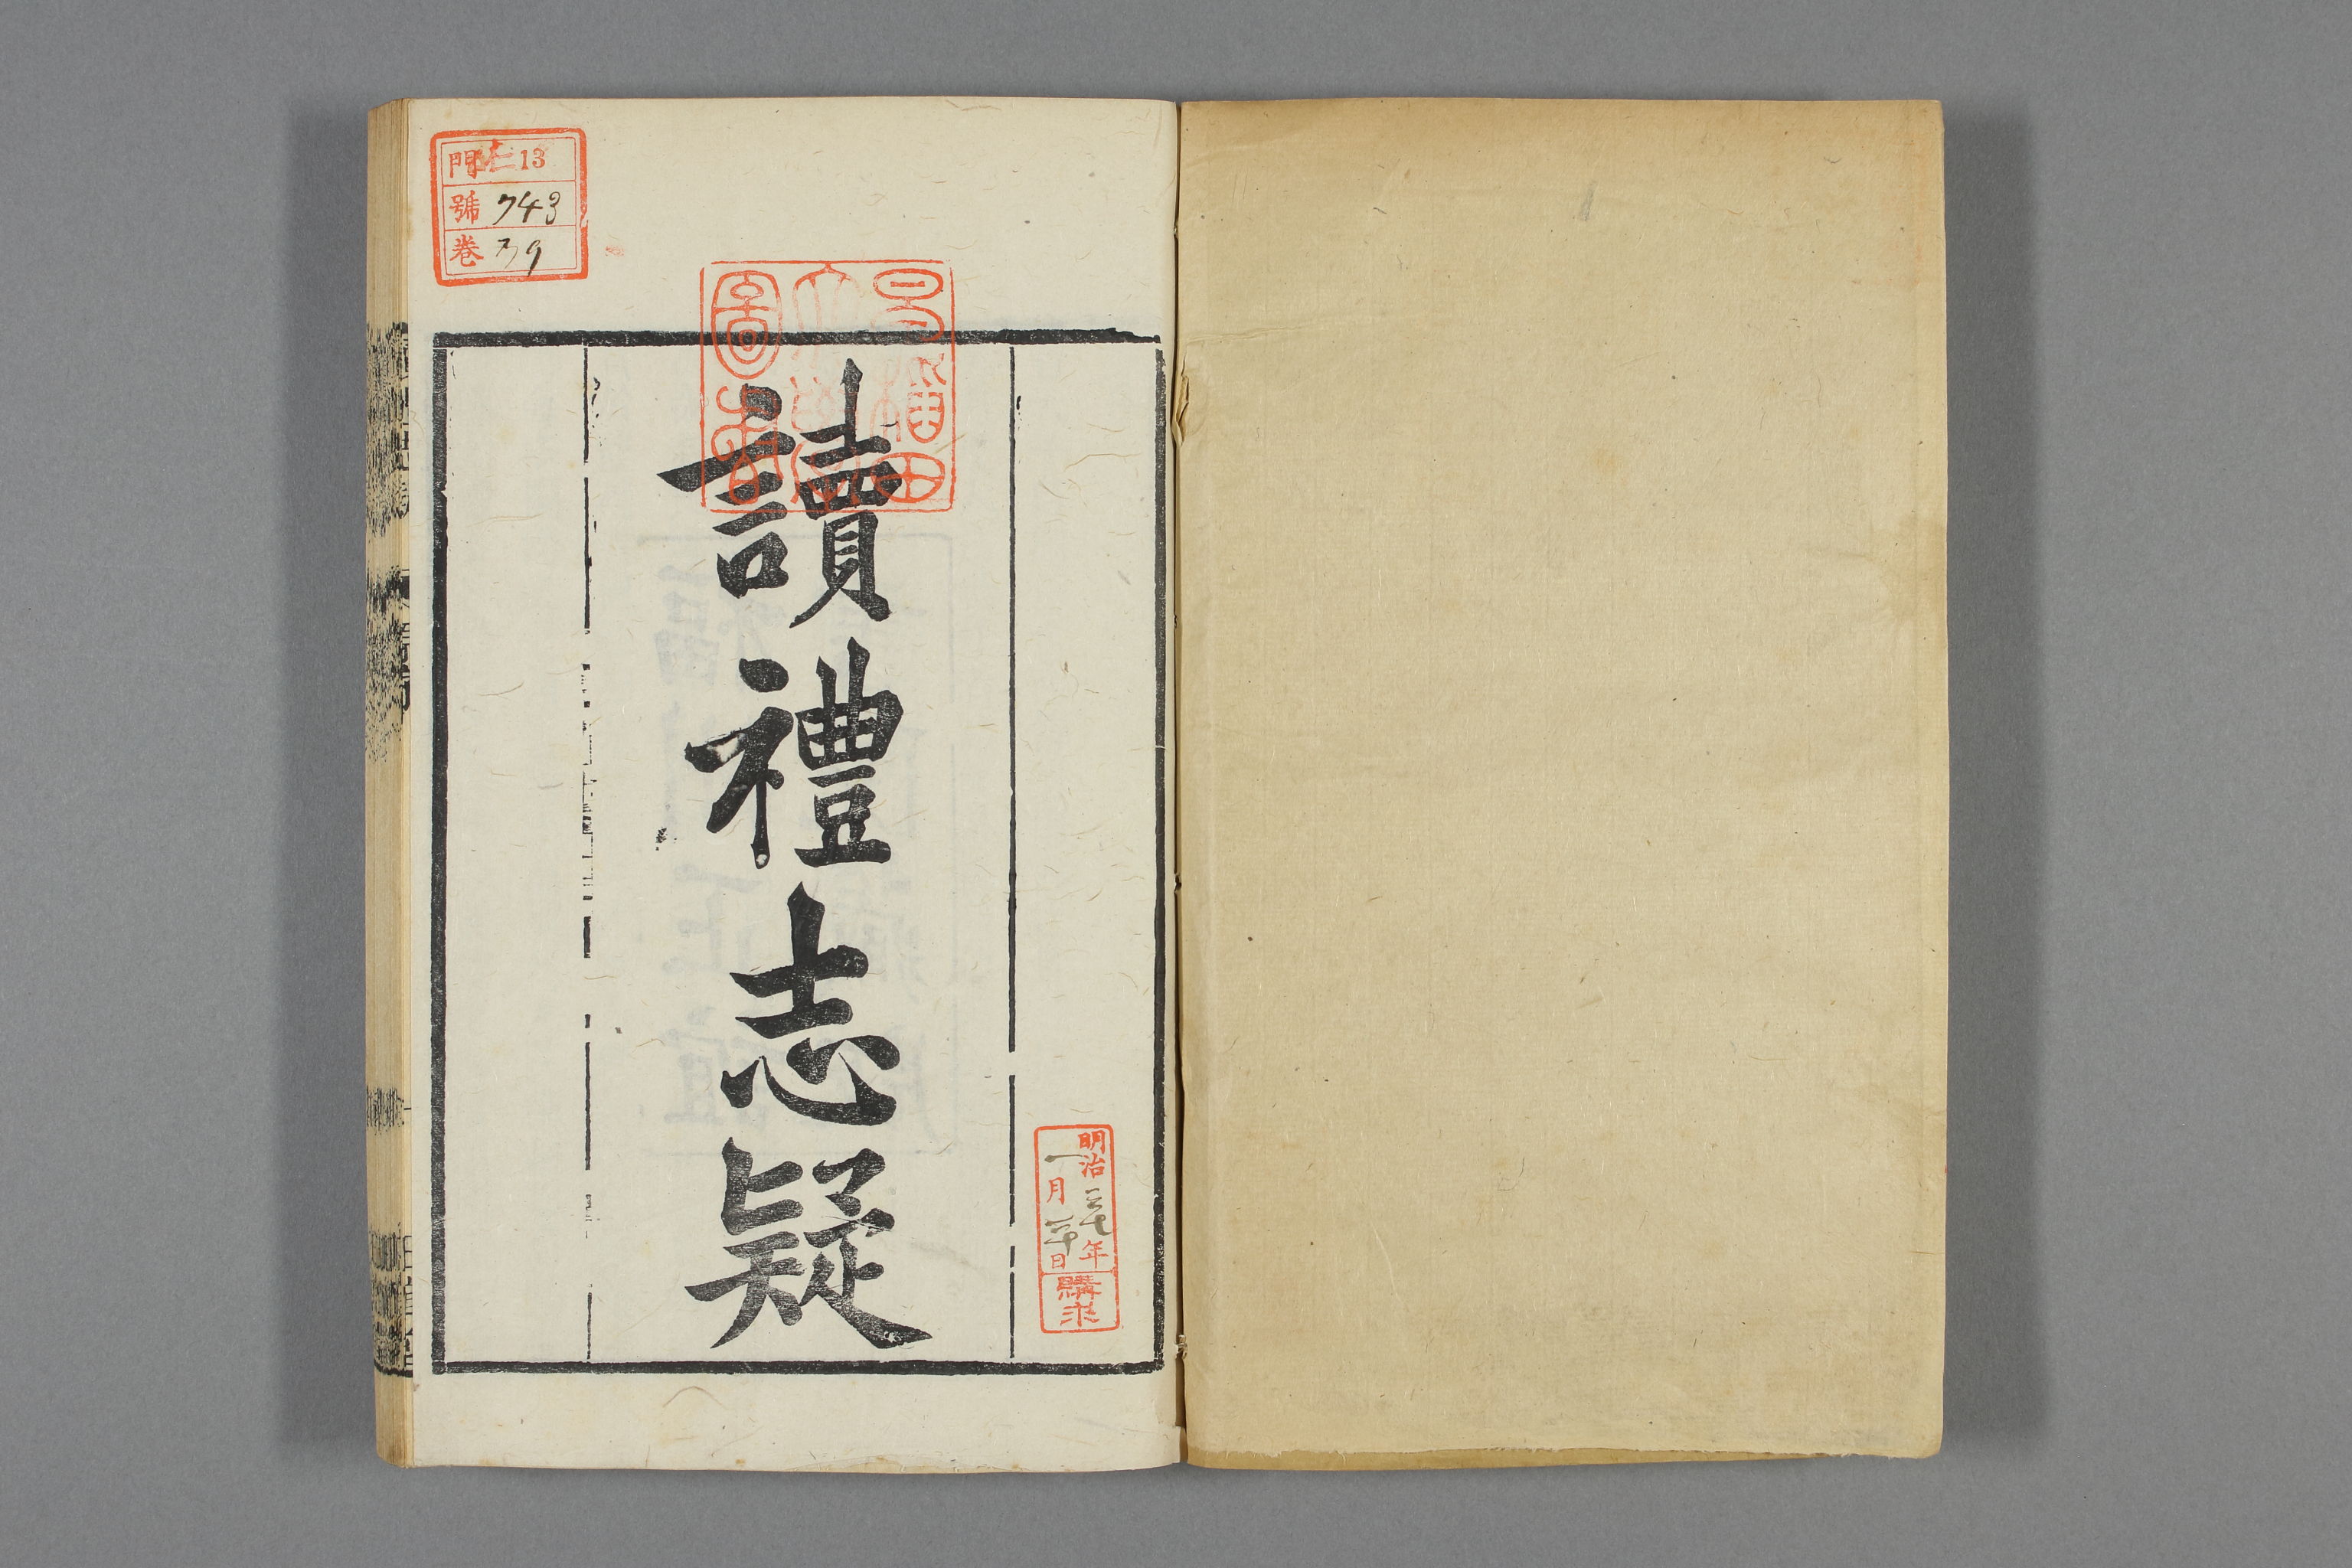 讀禮志疑
門 13
號 743
卷 39
早稲田
圖書
明治三七年
一月二十日
購求